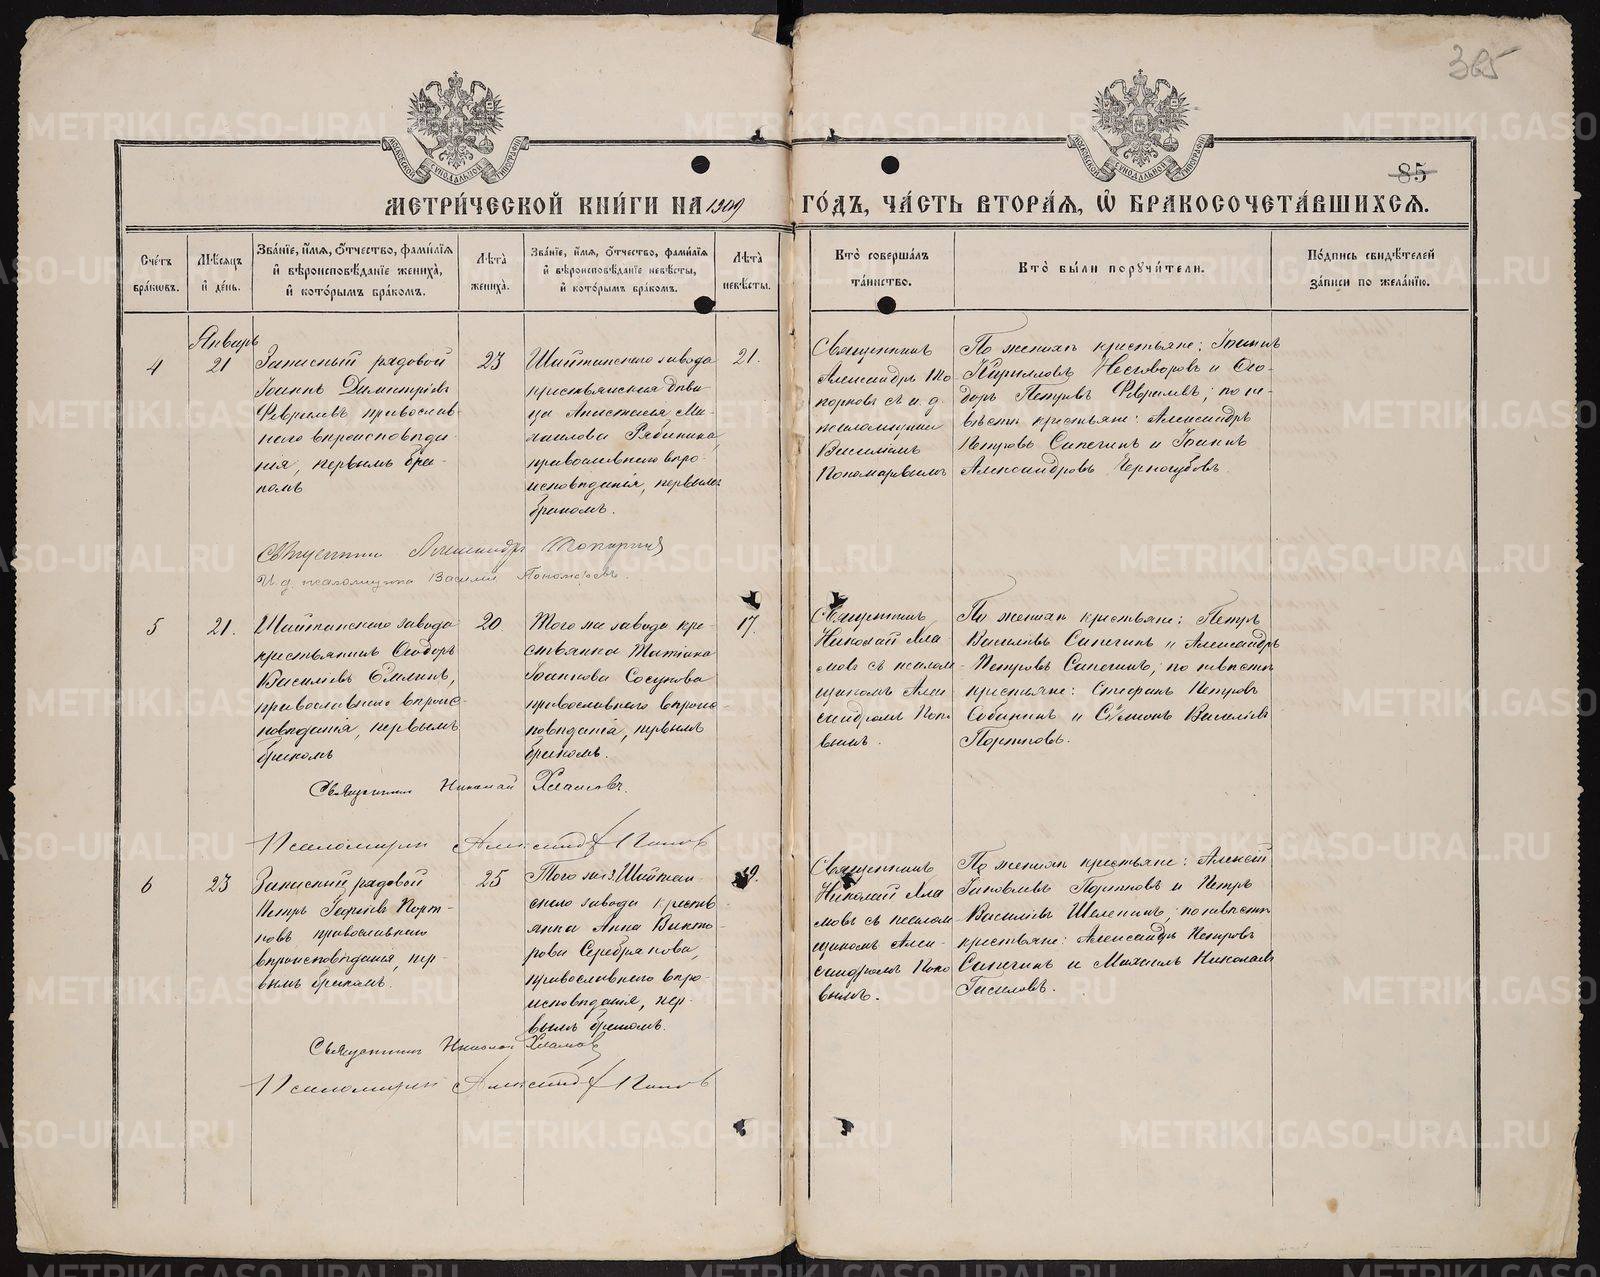 365
85
МЕТРИ́ЧЕСКОЙ КНИ́ГИ НА 1909 ГО́ДЪ, ЧА́СТЬ ВТОРА́Я, Ѡ БРАКОСОЧЕТА́ВШИХСЯ.
Сче́тъ бра́ковъ.
Мѣ́сяцъ и҆ де́нь.
Зва́нїе, и҆́мя, ѻ҆́тчество, фами́лїя и҆ вѣроисповѣ́данїе жениха̀, и҆ кото́рымъ бра́комъ.
Лѣта̀ жениха̀.
Зва́нїе, и҆́мя, ѻ҆́тчество, фами́лїя и҆ вѣроисповѣ́данїе невѣ́сты, и҆ кото́рымъ бра́комъ.
Лѣта̀ невѣ́сты.
Кто̀ соверша́лъ та́инство.
Кто̀ бы́ли порꙋчи́тели.
По́дпись свидѣ́телей за́писи по жела́нїю.
Январь
4
21
Запасный рядовой
Іоаннъ Димитріевъ
Февралевъ православ-
наго вѣроисповѣда-
нія, первымъ бра-
комъ
23
Шайтанскаго завода
крестьянская дѣви-
ца Анастасія Ми-
хаилова Рябинина,
православнаго вѣро-
исповѣданія, первымъ
бракомъ.
21.
Священникъ
Александръ То-
порковъ съ и. д.
псаломщика
Василіемъ
Пономаревымъ
По женихѣ крестьяне: Іоаннъ
Кирилловъ Несговоровъ и Ѳео-
доръ Петровъ Февралевъ; по не-
вѣстѣ крестьяне: Александръ
Петровъ Сапегинъ и Іоаннъ
Александровъ Черногубовъ.
Священникъ Александръ Топорковъ
И. д. псаломщика Василій Пономаревъ.
5
21.
Шайтанскаго завода
крестьянинъ Ѳеодоръ
Василіевъ Емлинъ,
православнаго вѣроис-
повѣданія, первымъ
бракомъ
20.
Того же завода кре-
стьянка Татіана
Іоаннова Сосунова
православнаго вѣроис-
повѣданія, первымъ
бракомъ.
17.
Священникъ
Николай Хла-
мовъ съ псалом-
щикомъ Алек-
сандромъ Попо-
вымъ.
По женихѣ крестьяне: Петръ
Василіевъ Сапегинъ и Александръ
Петровъ Сапегинъ; по невѣстѣ
крестьяне: Стефанъ Петровъ
Собянинъ и Симеонъ Василіевъ
Портновъ.
Священникъ Николай Хламовъ.
Псаломщикъ Александръ Поповъ
6
23
Запасный рядовой
Петръ Георгіевъ Порт-
новъ православнаго
вѣроисповѣданія, пер-
вымъ бракомъ.
25
Того же Шайтан-
скаго завода кресть-
янка Анна Викто-
рова Серебрякова,
православнаго вѣро-
исповѣданія, пер-
вымъ бракомъ.
Священникъ
Николай Хла-
мовъ съ псалом-
щикомъ Алек-
сандромъ Попо-
вымъ.
По женихѣ крестьяне: Алексій
Іаковлевъ Портновъ и Петръ
Василіевъ Шелепинъ; по невѣстѣ
крестьяне: Александръ Петровъ
Сапегинъ и Михаилъ Николаевъ
Гасиловъ.
Священникъ Николай Хламовъ
Псаломщикъ Александръ Поповъ
METRIKI.GASO-URAL.RU